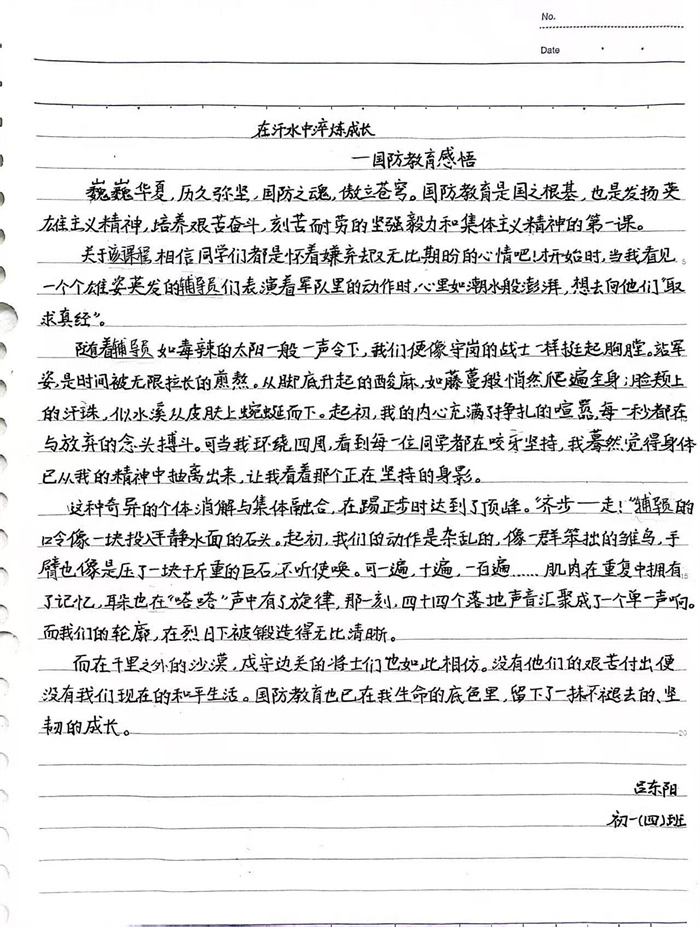 No.
Date
在汗水中淬炼成长
—国防教育感悟
巍巍华夏，历久弥坚，国防之魂，傲立苍穹。国防教育是国之根基，也是发扬英
雄主义精神，培养艰苦奋斗，刻苦耐劳的坚强毅力和集体主义精神的第一课。
关于该课程，相信同学们都是怀着嫌弃却又无比期盼的心情吧！才开始时，当我看见
一个个雄姿英发的辅导员们表演着军队里的动作时，心里如潮水般澎湃，想去向他们“取
求真经”。
随着辅导员如毒辣的太阳一般一声令下，我们便像守岗的战士一样挺起胸膛。站军
姿，是时间被无限拉长的煎熬。从脚底升起的酸麻，如藤蔓般悄然爬遍全身；脸颊上
的汗珠，似水溪从皮肤上蜿蜒而下。起初，我的内心充满了挣扎的喧嚣，每一秒都在
与放弃的念头搏斗。可当我环绕四周，看到每一位同学都在咬牙坚持，我蓦然觉得身体
已从我的精神中抽离出来，让我看着那个正在坚持的身影。
这种奇异的个体消解与集体融合，在踢正步时达到了顶峰。“齐步——走！”辅导员的
口令像一块投入平静水面的石头。起初，我们的动作是杂乱的，像一群笨拙的雏鸟，手
臂也像是压了一块千斤重的巨石，不听使唤。可一遍，十遍，一百遍……肌肉在重复中拥有
了记忆，耳朵也在“嗒嗒”声中有了旋律，那一刻，四十四个落地声音汇聚成了一个单一声响。
而我们的轮廓，在烈日下被锻造得无比清晰。
而在千里之外的沙漠，戍守边关的将士们也如此相仿。没有他们的艰苦付出便
没有我们现在的和平生活。国防教育也已在我生命的底色里，留下了一抹不褪去的、坚
韧的成长。
吕东阳
初一（四）班